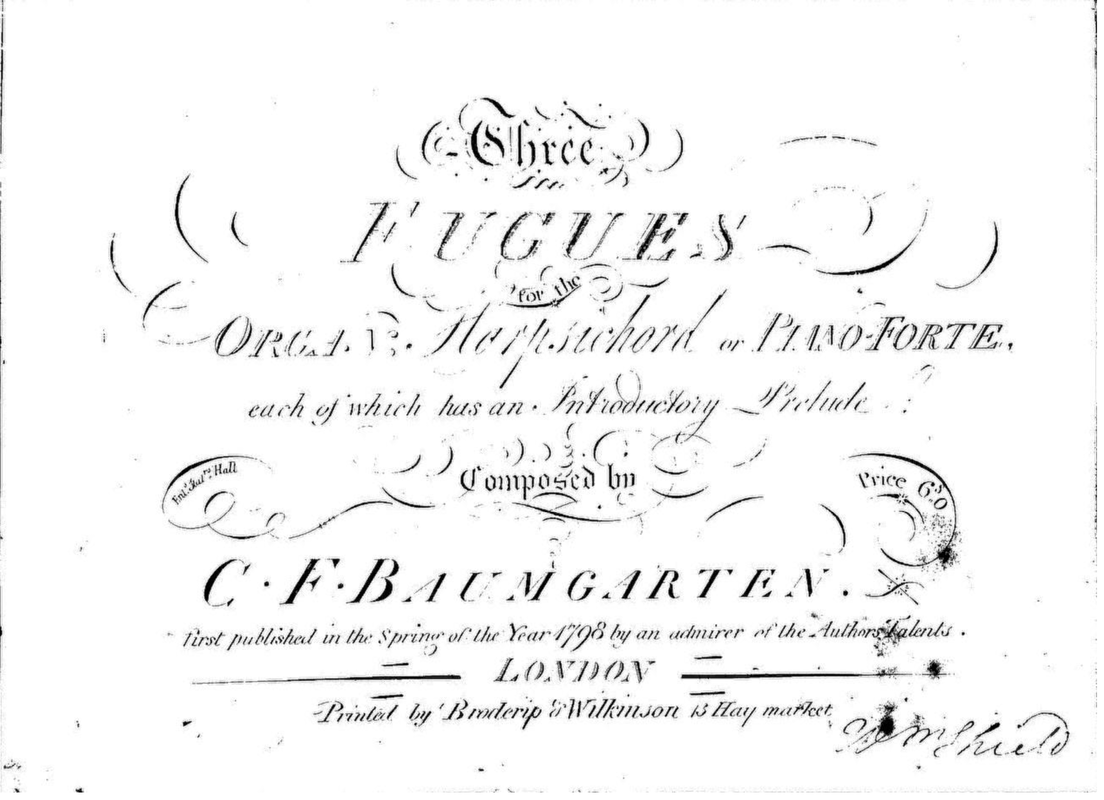 Three
FUGUES
for the
ORGAN. Harpsichord or PIANO-FORTE,
each of which has an Introductory Prelude
Composed by
Ent. Sta.rs Hall
Price 6s.0
C. F. BAUMGARTEN.
first published in the Spring of the Year 1798 by an admirer of the Authors Talents.
LONDON
Printed by Broderip & Wilkinson 13 Hay market
Wm Shield